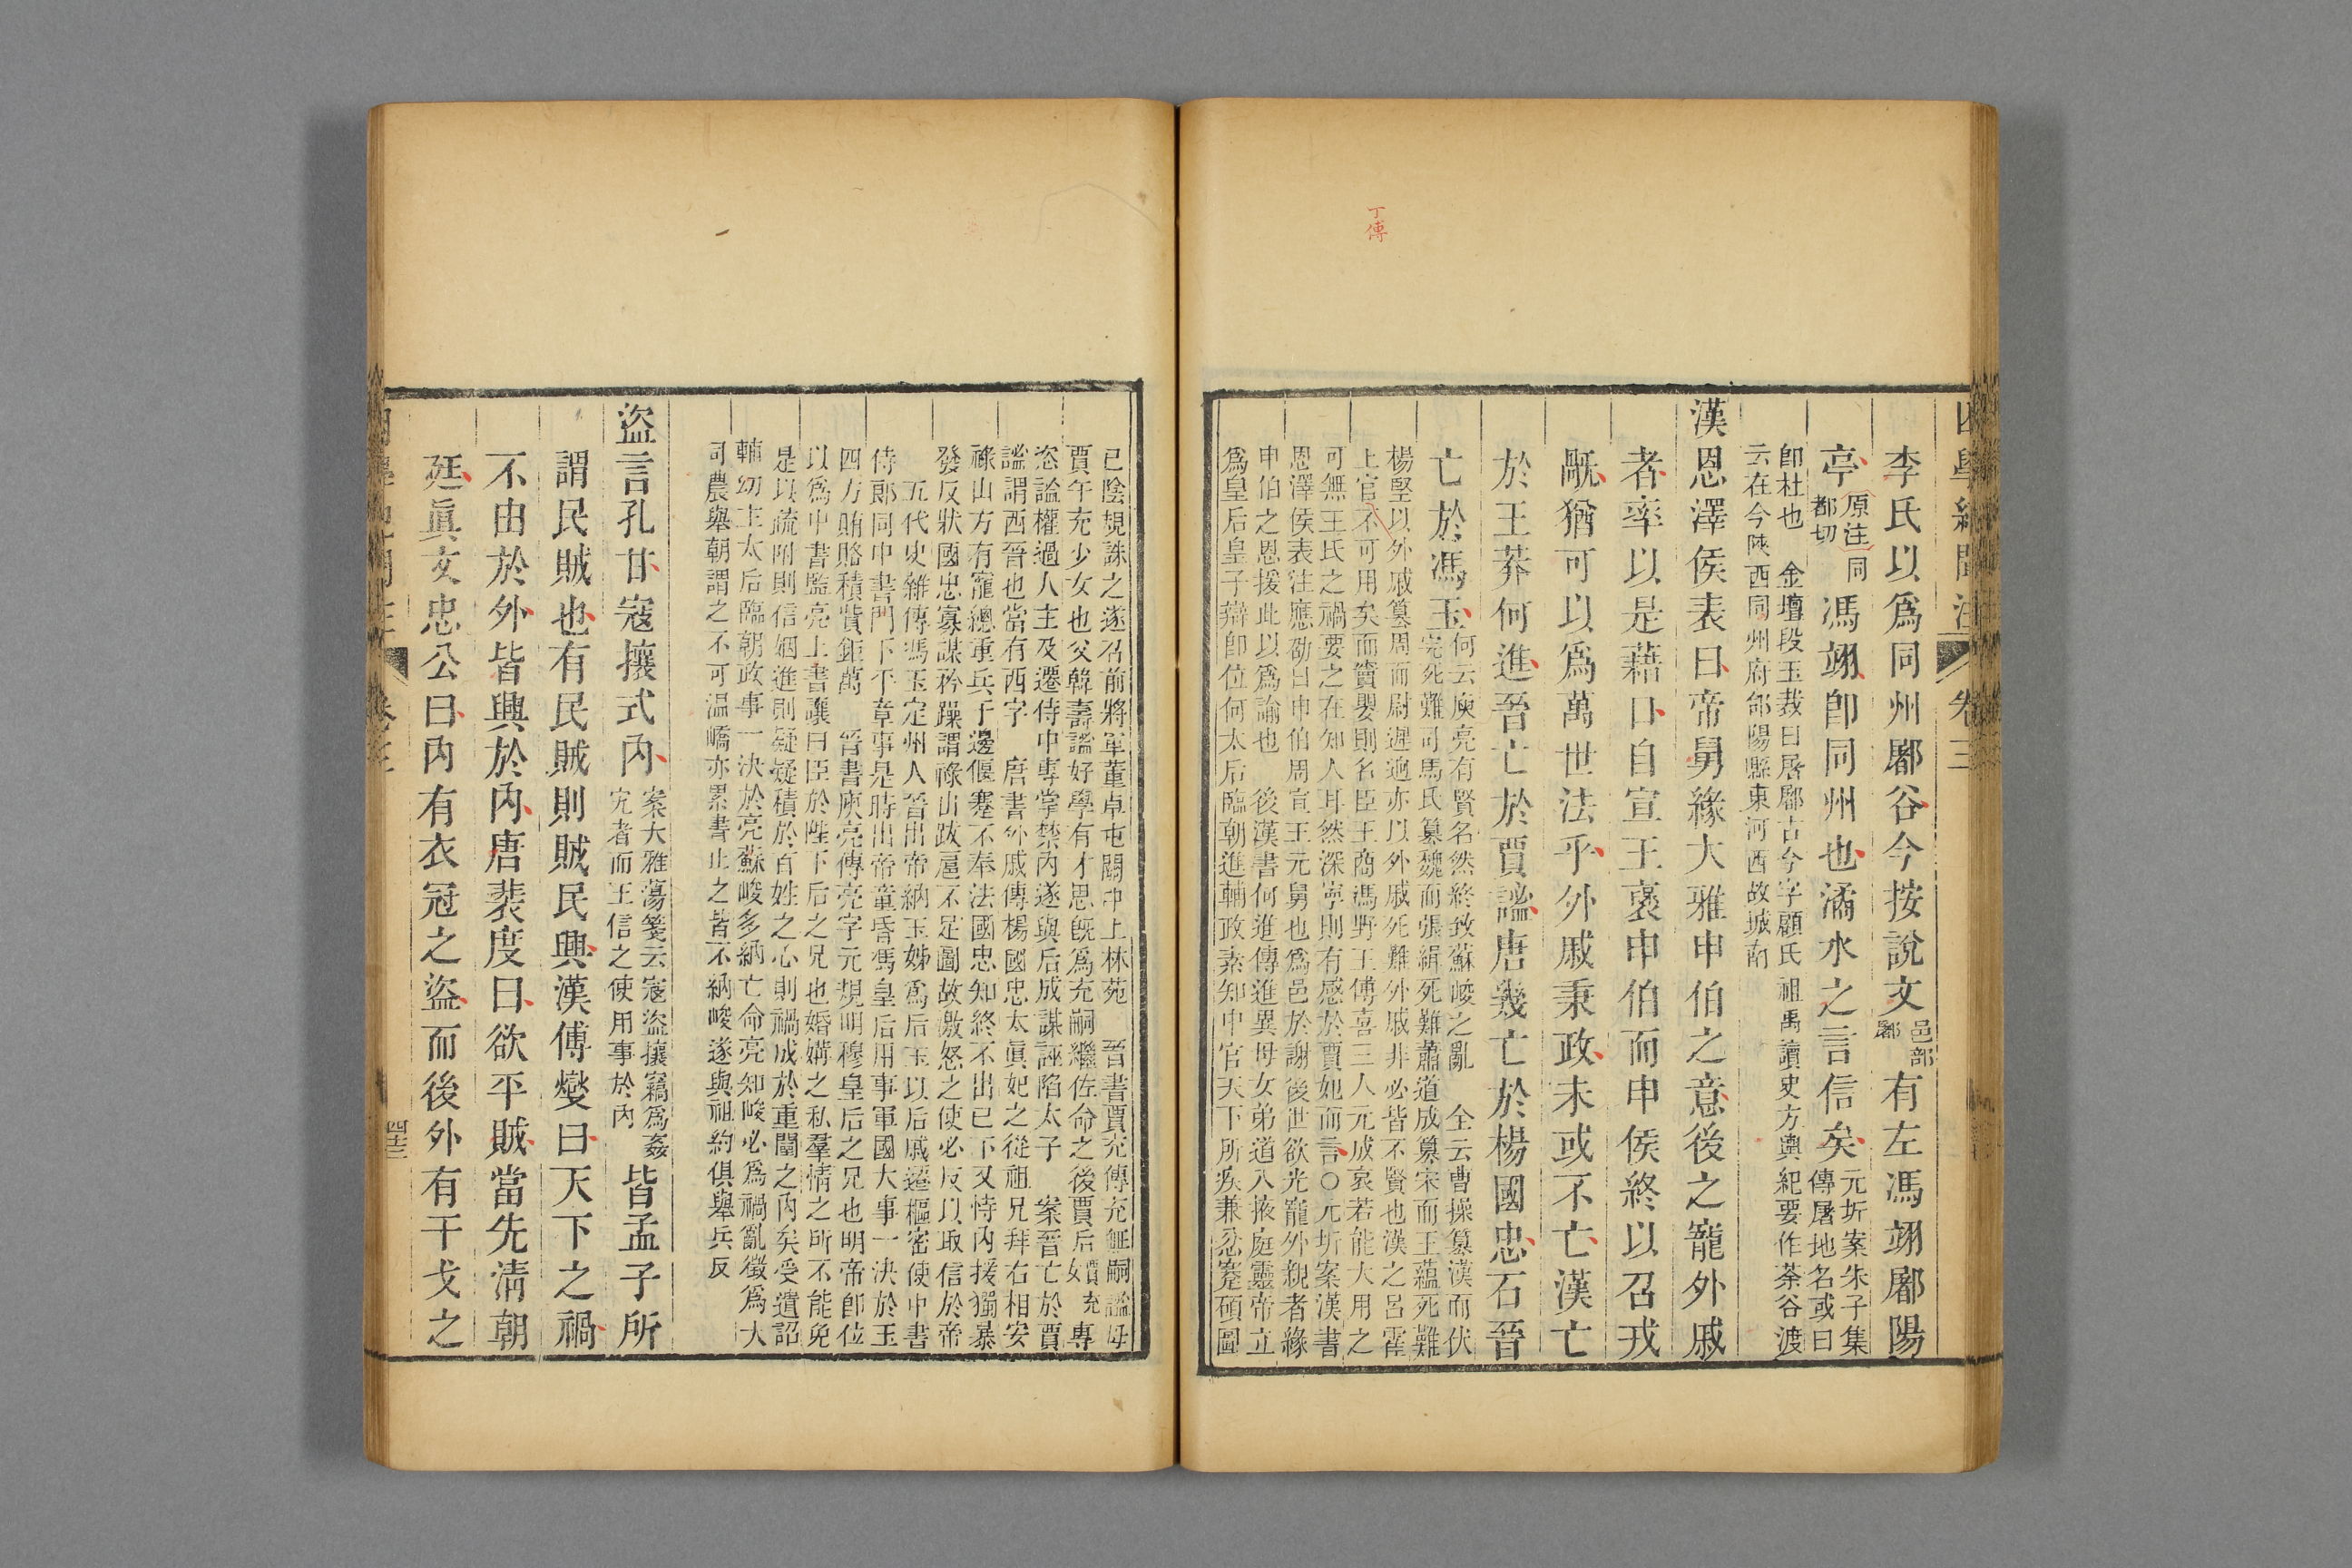 丁傅
李氏以爲同州鄜谷今按說文邑部鄜有左馮翊鄜陽
亭原注同都切馮翊卽同州也潏水之言信矣元圻案朱子集傳屠地名或曰
卽杜也 金壇段玉裁曰屠鄜古今字顧氏祖禹讀史方輿紀要作荼谷渡
云在今陝西同州府郃陽縣東河西故城南
漢恩澤侯表曰帝舅緣大雅申伯之意後之寵外戚
者率以是藉口自宣王褒申伯而申侯終以召戎
旤猶可以爲萬世法乎外戚秉政未或不亡漢亡
於王莽何進晉亡於賈謐唐幾亡於楊國忠石晉
亡於馮玉何云庾亮有賢名然終致蘇峻之亂 全云曹操篡漢而伏
完死難司馬氏篡魏而張緝死難蕭道成篡宋而王蘊死難
楊堅以外戚篡周而尉遲迥亦以外戚死難外戚非必皆不賢也漢之呂霍
上官不可用矣而竇嬰則名臣王商馮野王傅喜三人元成哀若能大用之
可無王氏之禍要之在知人耳然深寧則有感於賈妃而言○元圻案漢書
恩澤侯表注應劭曰申伯周宣王元舅也爲邑於謝後世欲光寵外親者緣
申伯之恩援此以爲諭也 後漢書何進傳進異母女弟道入掖庭靈帝立
爲皇后皇子辯卽位何太后臨朝進輔政素知中官天下所疾兼忿蹇碩圖
已陰規誅之遂召前將軍董卓屯關中上林苑 晉書賈充傳充無嗣謐母
賈午充少女也父韓壽謐好學有才思旣爲充嗣繼佐命之後賈后女賈充專
恣謐權過人主及遷侍中專掌禁內遂與后成謀誣陷太子 案晉亡於賈
謐謂西晉也當有西字 唐書外戚傳楊國忠太眞妃之從祖兄拜右相安
祿山方有寵總重兵于邊偃蹇不奉法國忠知終不出已下又恃內援獨暴
發反狀國忠寡謀矜躁謂祿山跋扈不足圖故激怒之使必反以取信於帝
五代史雜傳馮玉定州人晉出帝納玉姊爲后玉以后戚遷樞密使中書
侍郞同中書門下平章事是時出帝童昏馮皇后用事軍國大事一決於玉
四方賄賂積貲鉅萬 晉書庾亮傳亮字元規明穆皇后之兄也明帝卽位
以爲中書監亮上書讓曰臣於陛下后之兄也婚媾之私羣情之所不能免
是以疏附則信姻進則疑疑積於百姓之心則禍成於重閨之內矣受遺詔
輔幼主太后臨朝政事一決於亮蘇峻多納亡命亮知峻必爲禍亂徵爲大
司農舉朝謂之不可温嶠亦累書止之皆不納峻遂與祖約俱舉兵反
盜言孔甘寇攘式內案大雅蕩箋云寇盜攘竊爲姦宄者而王信之使用事於內皆孟子所
謂民賊也有民賊則賊民興漢傅燮曰天下之禍
不由於外皆興於內唐裴度曰欲平賊當先淸朝
廷眞文忠公曰內有衣冠之盜而後外有干戈之